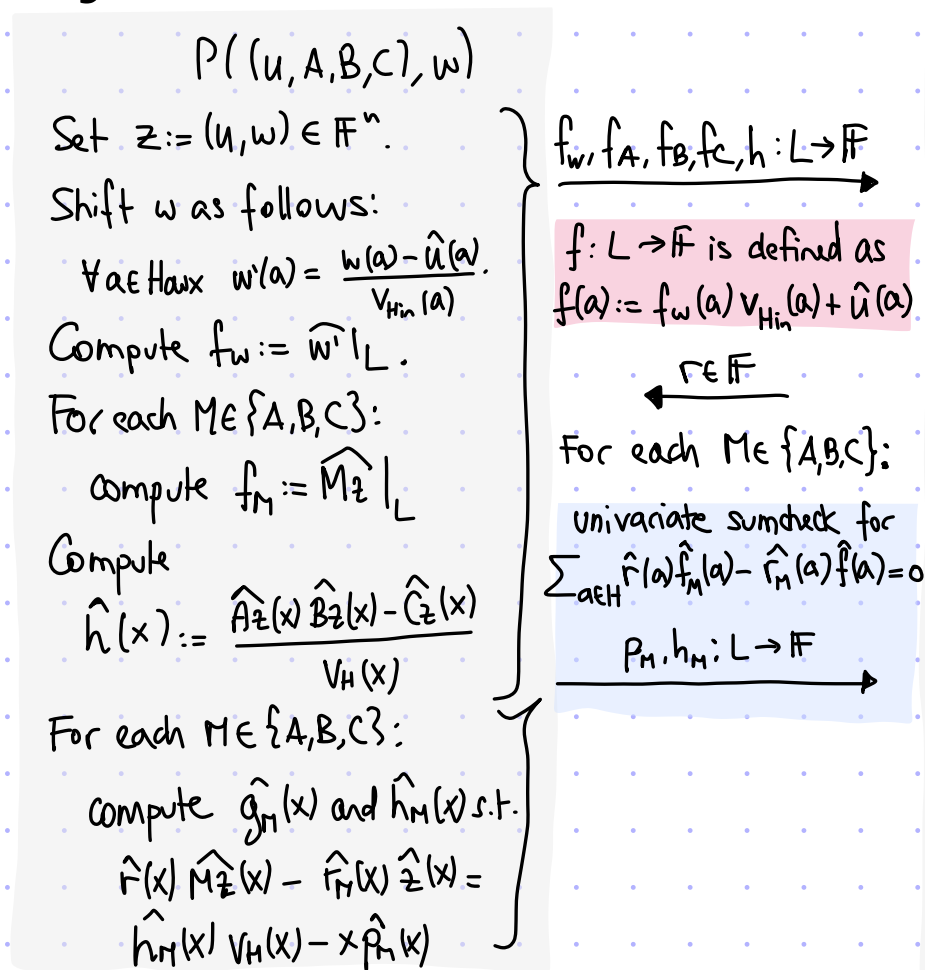 P((u,A,B,C),w)
Set z:=(u,w) ∈ 𝔽ⁿ.
Shift w as follows:
∀a∈Haux w'(a) = (w(a) - û(a)) / v_{Hin}(a).
Compute f_w := ŵ'|_L.
For each M∈{A,B,C}:
compute f_M := \widehat{Mz}|_L
Compute
ĥ(x) := (\widehat{Az}(x) \widehat{Bz}(x) - \widehat{Cz}(x)) / V_H(x)
For each M∈{A,B,C}:
compute ĝ_M(x) and ĥ_M(x) s.t.
r̂(x) \widehat{Mz}(x) - r̂_M(x) ẑ(x) =
ĥ_M(x) V_H(x) - x p̂_M(x)
f_w, f_A, f_B, f_C, h : L→𝔽
f: L→𝔽 is defined as
f(a) := f_w(a) v_{Hin}(a) + û(a)
r∈𝔽
For each M∈{A,B,C}:
univariate sumcheck for
∑_{a∈H} r̂(a) f̂_M(a) - r̂_M(a) f̂(a) = 0
p_M, h_M : L→𝔽